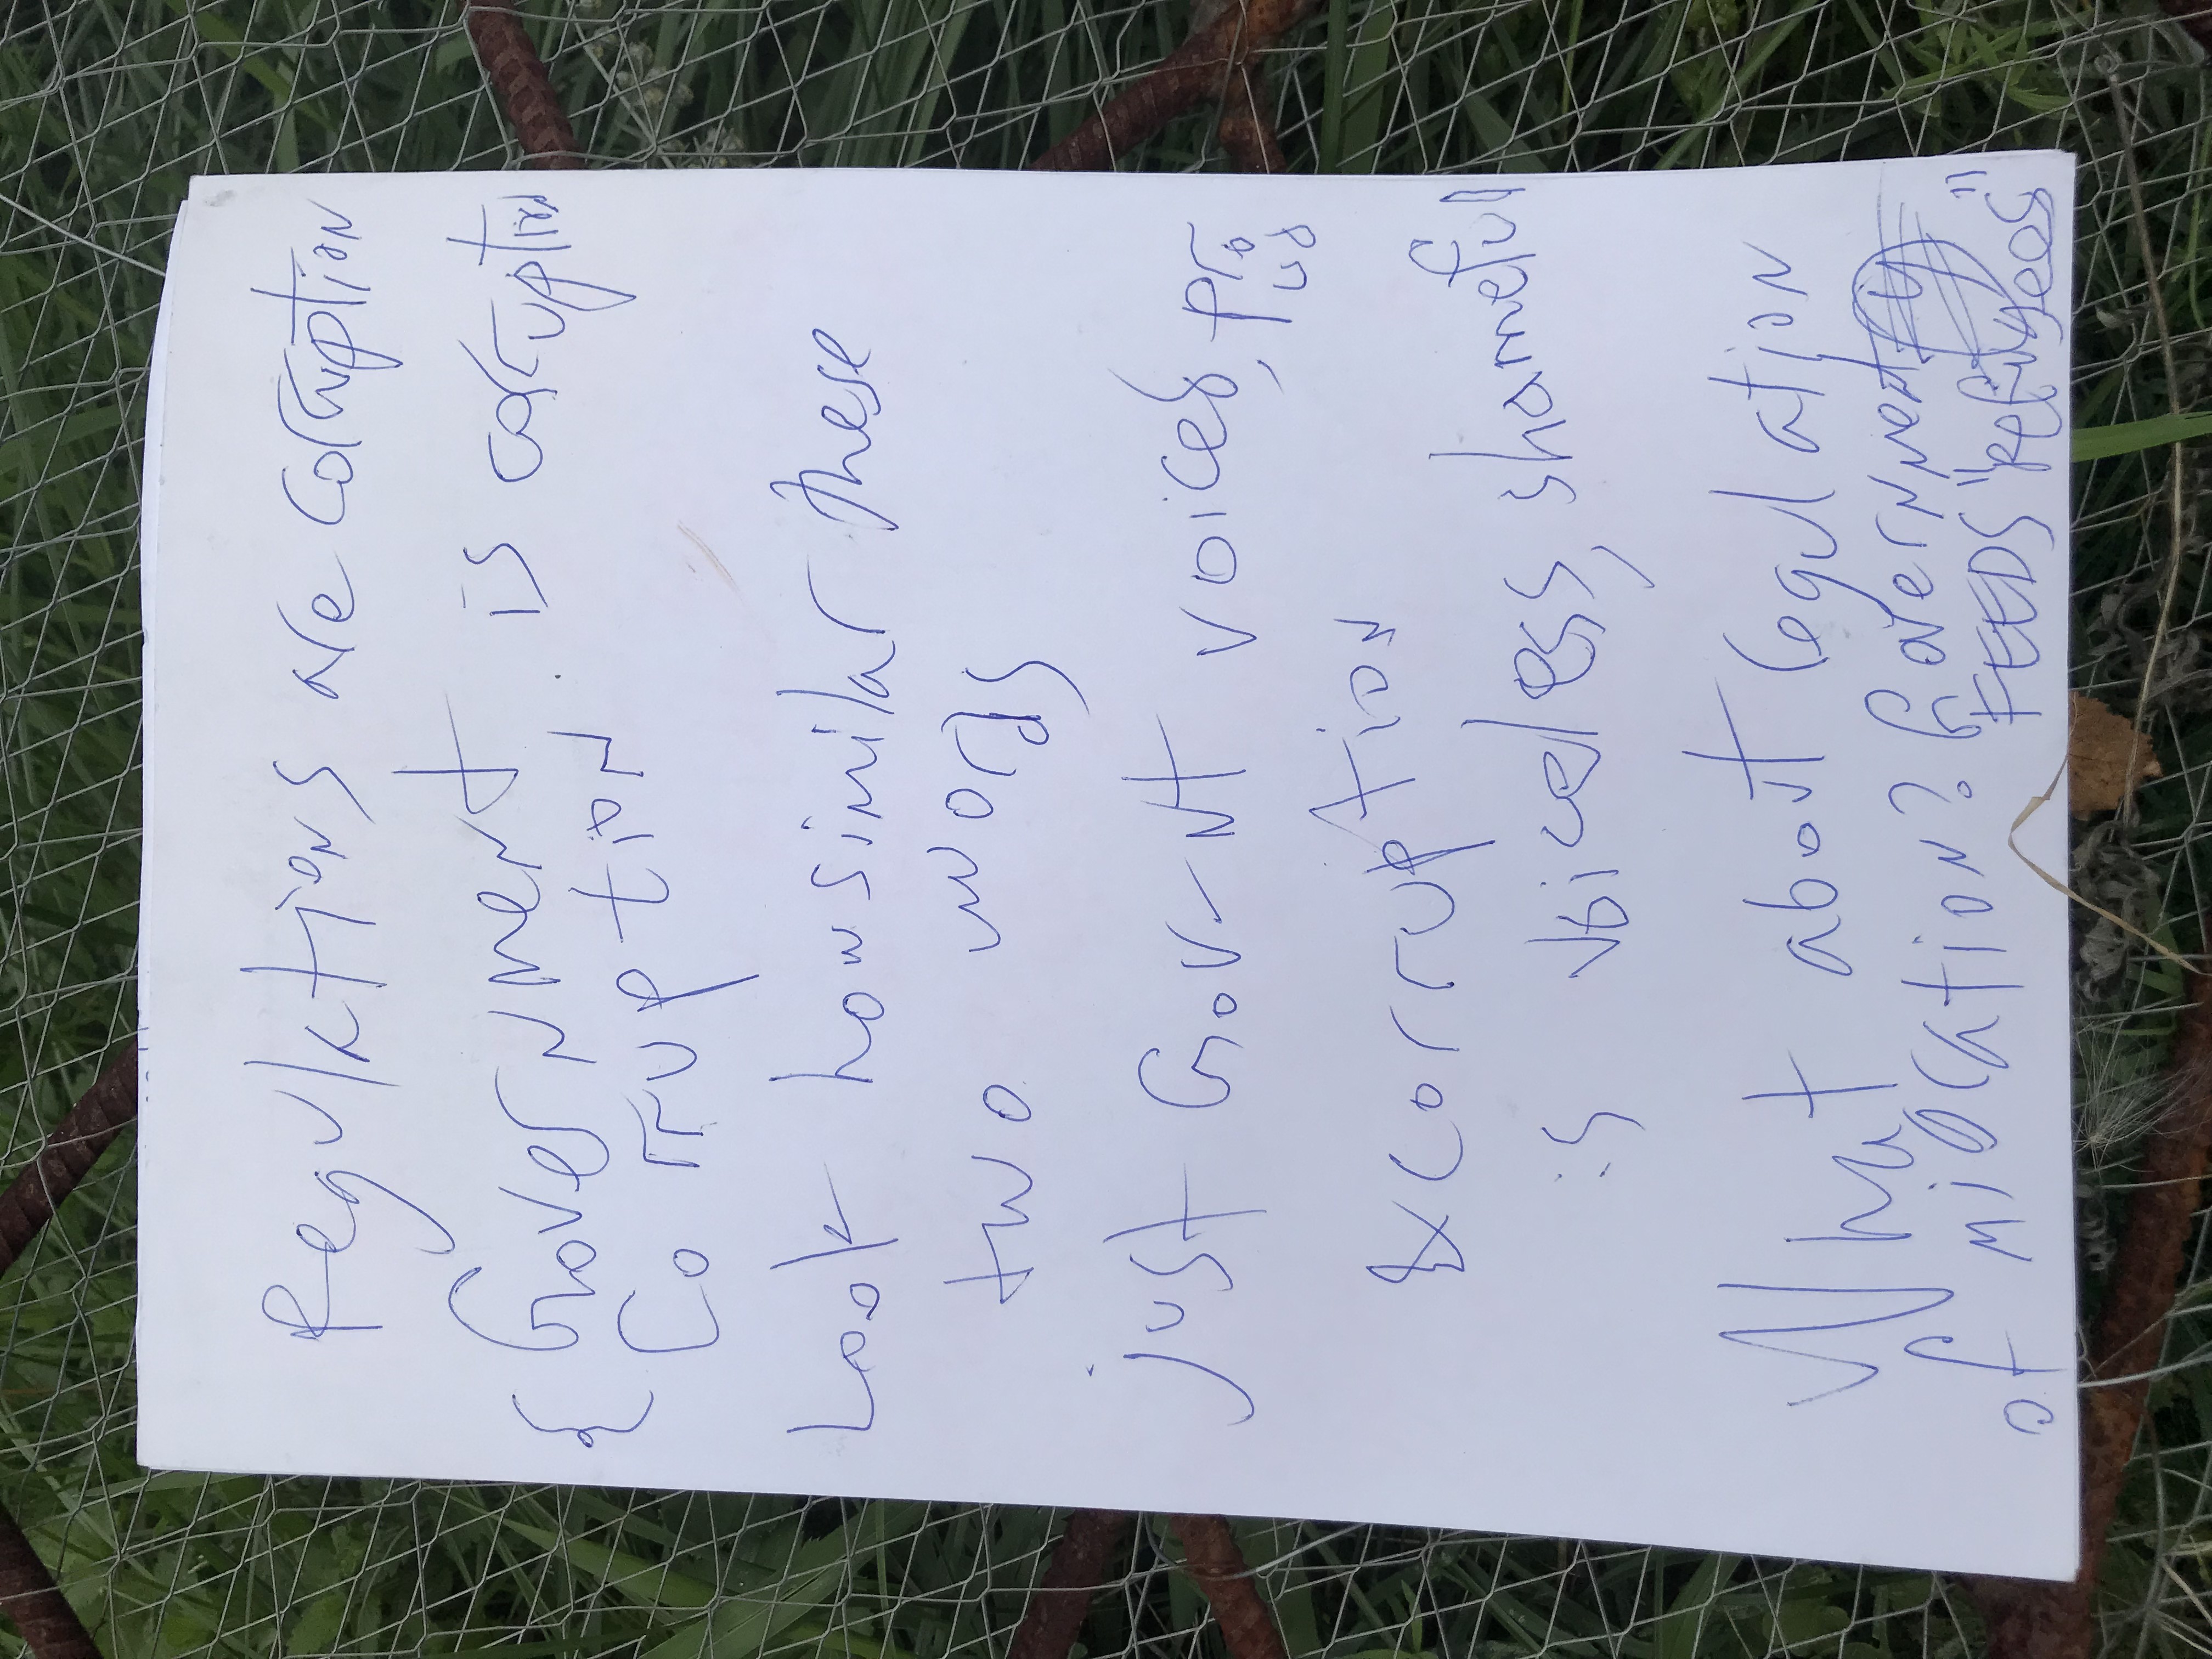 Regulations are corruption
Government is corruption
Corruption
Look how similar these
two words
just Gov-nt voiced, pro
ud
& corruption
is voiceless, shameful
What about regulation
of migration? Government
FEEDS "Refugees"